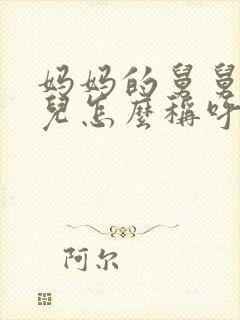 妈妈的舅舅
兒怎麼稱呼
阿尔